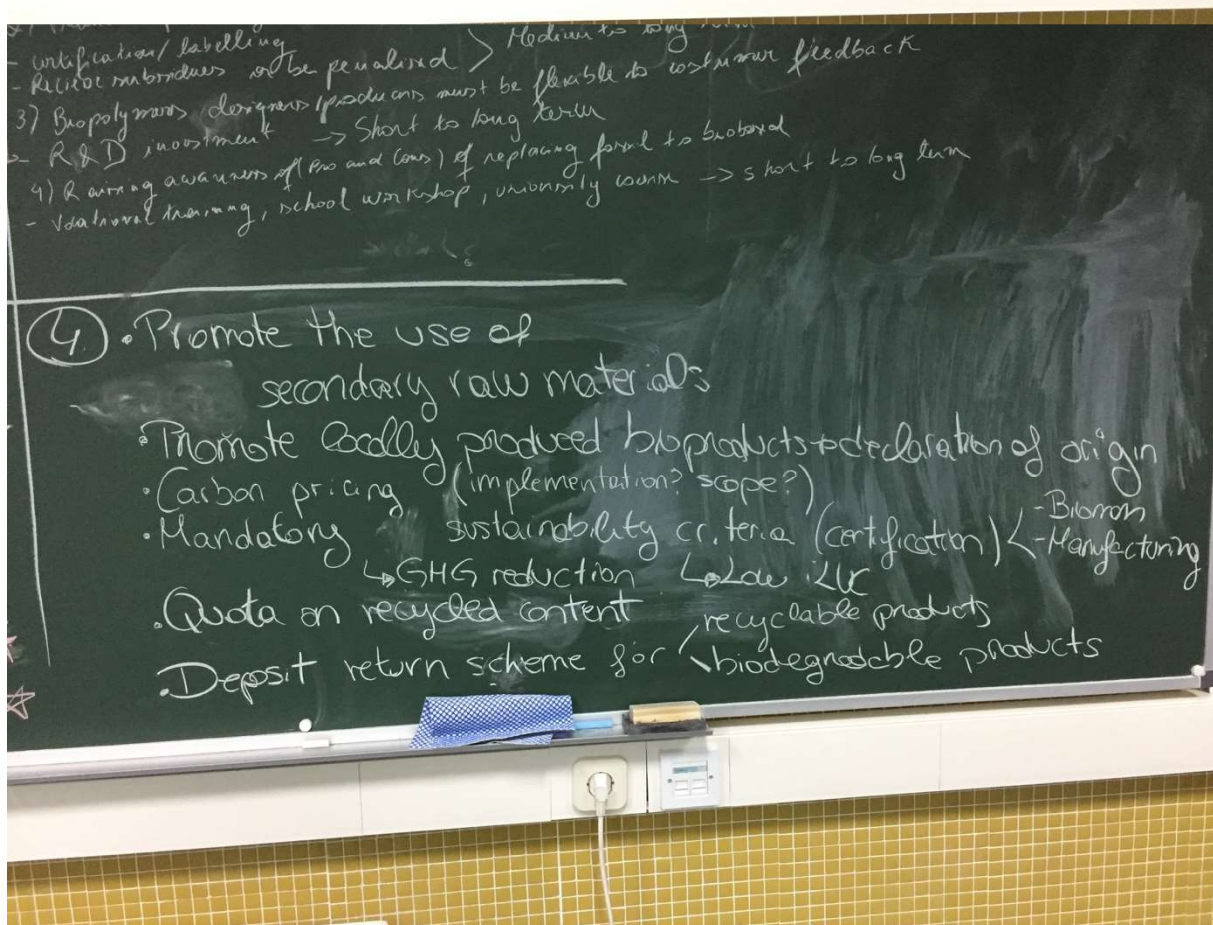 - certification/labelling
- subsidues or be penalised > Medium to long
3) Biopolymers designers/producers must be flexible to costumer feedback
- R&D investment -> Short to long term
4) Raising awareness of (Pro and Cons) of replacing fossil to biobased
- Vocational training, school workshop, university course -> short to long term
④ • Promote the use of
secondary raw materials
• Promote locally produced bioproducts + declaration of origin
• Carbon pricing (implementation? scope?)
• Mandatory sustainability criteria (certification) < - Biomass
- Manufacturing
↳ GHG reduction ↳ Low iLUC
• Quota on recycled content
• Deposit return scheme for < recyclable products
biodegradable products